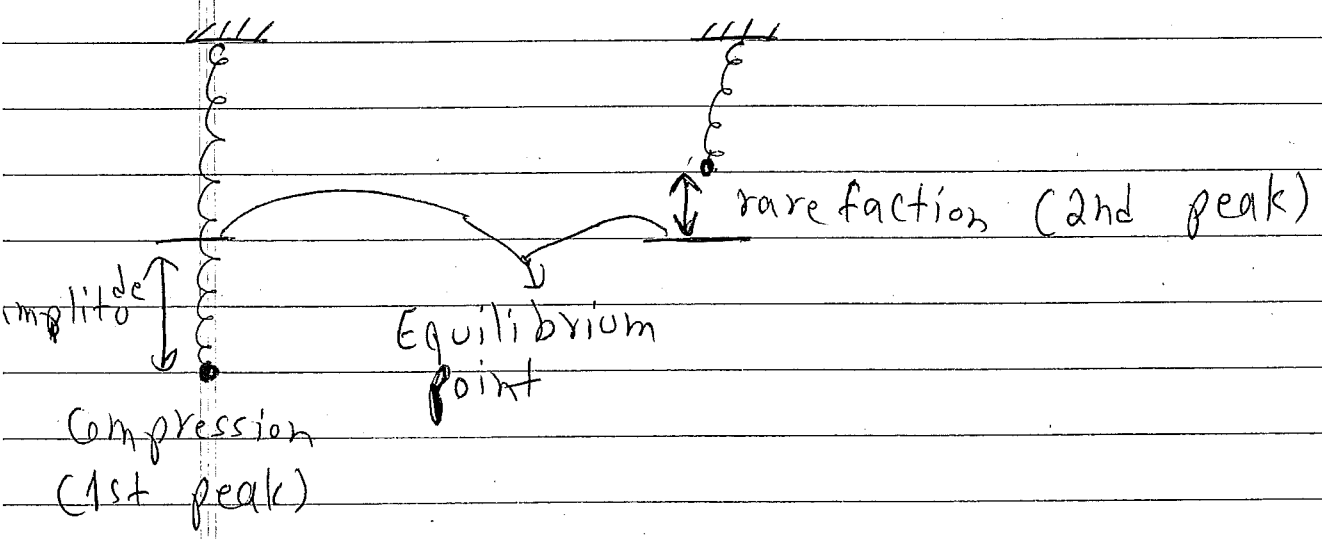 rarefaction (2nd peak)
mplitude
Equilibrium
point
Compression
(1st peak)